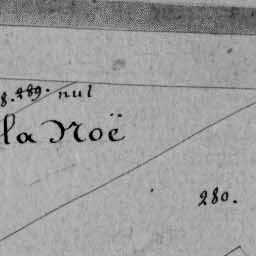 8. 289. nul
la Noë
280.